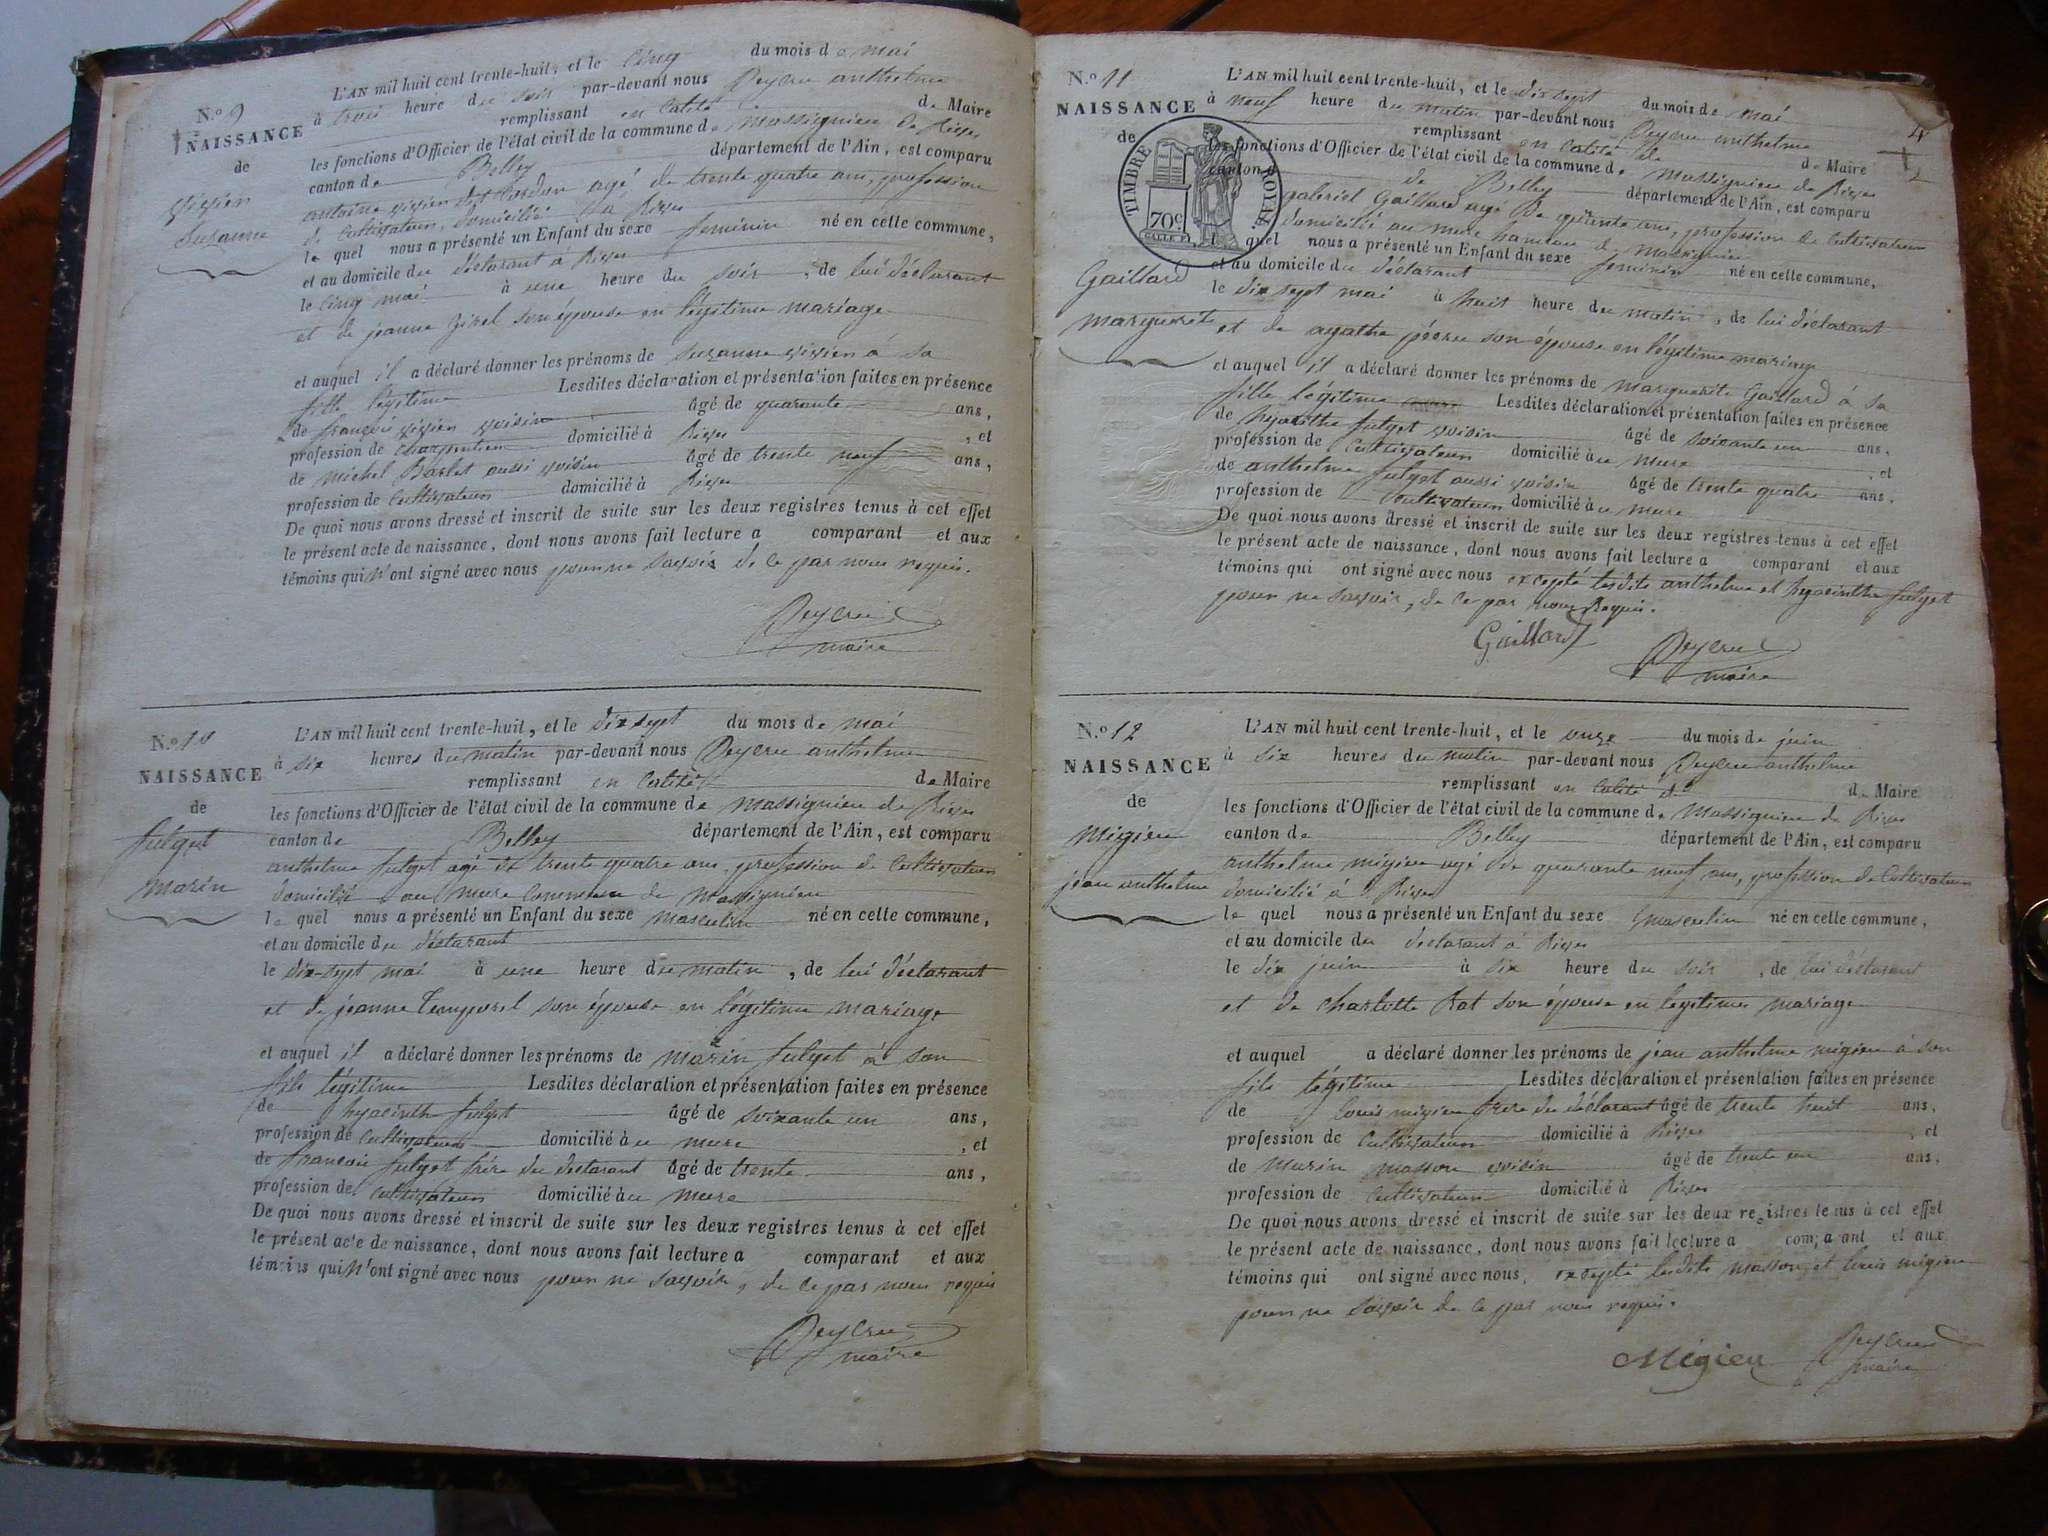 N.º 9
NAISSANCE
de
vivien
Suzanne
L'AN mil huit cent trente-huit, et le cinq du mois de mai
à trois heure du soir par-devant nous Peycru anthelme
remplissant en calité de Maire
les fonctions d'Officier de l'état civil de la commune de massignieu de Rives
canton de Belley département de l'Ain, est comparu
antoine vivien dit agé de trente quatre ans, profession
de Cultivateur, domicilié à Rives
le quel nous a présenté un Enfant du sexe feminin né en cette commune,
et au domicile du déclarant à Rives
le cinq mai à une heure du soir, de lui déclarant
et de jeanne son épouse en légitime mariage
et auquel il a déclaré donner les prénoms de suzanne vivien à sa
fille légitime Lesdites déclaration et présentation faites en présence
de françois vivien voisin âgé de quarante ans,
profession de charpentier domicilié à Rives, et
de michel Barlet aussi voisin âgé de trente neuf ans,
profession de Cultivateur domicilié à Rives
De quoi nous avons dressé et inscrit de suite sur les deux registres tenus à cet effet
le présent acte de naissance, dont nous avons fait lecture a comparant et aux
témoins qui n'ont signé avec nous pour ne savoir de ce par nous requis.
Peycru
maire
N.º 10
NAISSANCE
de
fulget
marin
L'AN mil huit cent trente-huit, et le dix sept du mois de mai
à six heures du matin par-devant nous Peycru anthelme
remplissant en calité de Maire
les fonctions d'Officier de l'état civil de la commune de massignieu de Rives
canton de Belley département de l'Ain, est comparu
anthelme fulget agé de trente quatre ans, profession de Cultivateur
domicilié au mure commune de massignieu
le quel nous a présenté un Enfant du sexe masculin né en cette commune,
et au domicile du déclarant
le dix-sept mai à une heure du matin, de lui déclarant
et de jeanne Temporel son épouse en légitime mariage
et auquel il a déclaré donner les prénoms de marin fulget à son
fils légitime Lesdites déclaration et présentation faites en présence
de hyacinthe fulget âgé de soixante un ans,
profession de Cultivateur domicilié au mure, et
de francois fulget frère du déclarant âgé de trente ans,
profession de Cultivateur domicilié au mure
De quoi nous avons dressé et inscrit de suite sur les deux registres tenus à cet effet
le présent acte de naissance, dont nous avons fait lecture a comparant et aux
témoins qui n'ont signé avec nous pour ne savoir, de ce par nous requis
Peycru
maire
N.º 11
NAISSANCE
de
TIMBRE ROYAL
70c
Gaillard
marguerite
L'AN mil huit cent trente-huit, et le dix sept du mois de mai
à neuf heure du matin par-devant nous Peycru anthelme
remplissant en calité de de Maire
les fonctions d'Officier de l'état civil de la commune de massignieu de Rives
canton de Belley département de l'Ain, est comparu
gabriel Gaillard agé de quarante ans, profession de Cultivateur
domicilié au mure hameau de massignieu
le quel nous a présenté un Enfant du sexe feminin né en cette commune,
et au domicile du déclarant
le dix sept mai à huit heure du matin, de lui déclarant
et de agathe pécru son épouse en légitime mariage
et auquel il a déclaré donner les prénoms de marguerite Gaillard à sa
fille légitime Lesdites déclaration et présentation faites en présence
de hyacinthe fulget voisin âgé de soixante un ans,
profession de Cultivateur domicilié au mure, et
de anthelme fulget aussi voisin âgé de trente quatre ans,
profession de Cultivateur domicilié au mure
De quoi nous avons dressé et inscrit de suite sur les deux registres tenus à cet effet
le présent acte de naissance, dont nous avons fait lecture a comparant et aux
témoins qui ont signé avec nous excepté lesdits anthelme et hyacinthe fulget
pour ne savoir, de ce par nous Requis.
Gaillard
Peycru
maire
N.º 12
NAISSANCE
de
Migieu
jean anthelme
L'AN mil huit cent trente-huit, et le onze du mois de juin
à six heures du matin par-devant nous Peycru anthelme
remplissant en calité de de Maire
les fonctions d'Officier de l'état civil de la commune de Massignieu de Rives
canton de Belley département de l'Ain, est comparu
anthelme migieu agé de quarante neuf ans, profession de Cultivateur
domicilié à Rives
le quel nous a présenté un Enfant du sexe masculin né en cette commune,
et au domicile du déclarant à Rives
le dix juin à six heure du soir, de lui déclarant
et de charlotte Rat son épouse en legitimes mariage
et auquel a déclaré donner les prénoms de jean anthelme migieu à son
fils légitime Lesdites déclaration et présentation faites en présence
de louis migieu frere du déclarant âgé de trente huit ans,
profession de Cultivateur domicilié à Rives, et
de Marin masson voisin âgé de trente un ans,
profession de Cultivateur domicilié à Rives
De quoi nous avons dressé et inscrit de suite sur les deux registres tenus à cet effet
le présent acte de naissance, dont nous avons fait lecture a comparant et aux
témoins qui ont signé avec nous, excepté lesdits masson, et louis migieu
pour ne savoir de ce par nous requis.
Migieu
Peycru
maire